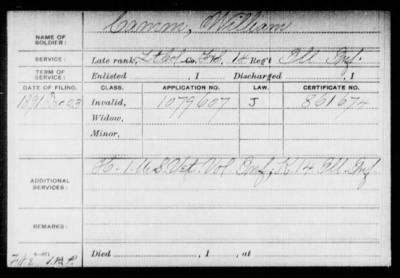 NAME OF SOLDIER: Camm, William
SERVICE: Late rank, Lt Col, Co. F&S, 14 Reg't Ill Inf.
TERM OF SERVICE: Enlisted , 1 Discharged , 1
DATE OF FILING. CLASS. APPLICATION NO. LAW. CERTIFICATE NO.
1891 Dec 23 Invalid, 1079607 J 861674
Widow,
Minor,
ADDITIONAL SERVICES: H. 1 U S Vet. Vol Inf, K. 14 Ill. Inf
REMARKS:
Died , 1 , at